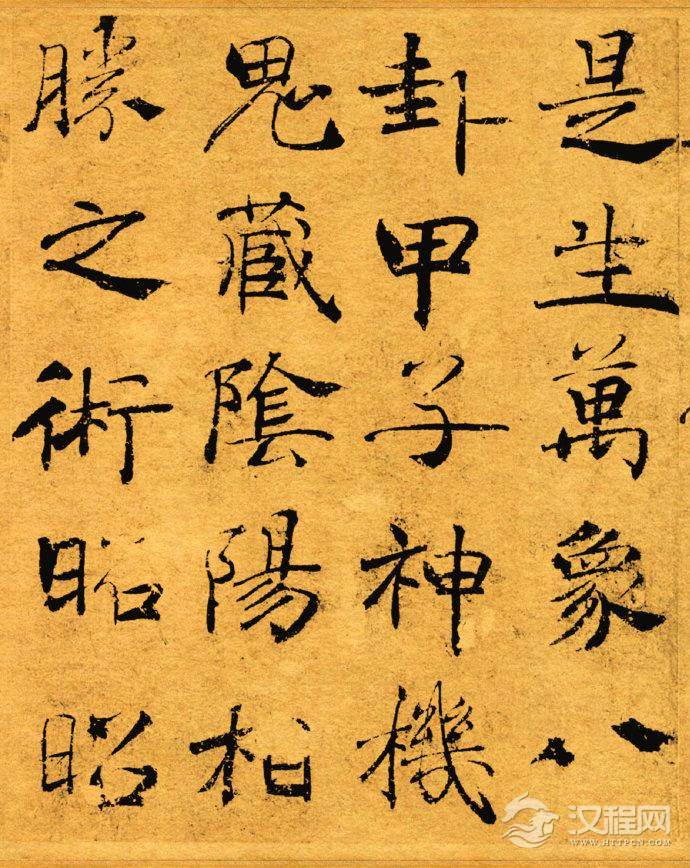 是生萬象八
卦甲子神機
鬼藏陰陽相
勝之術昭昭
汉程网
WWW.HTTPCN.COM